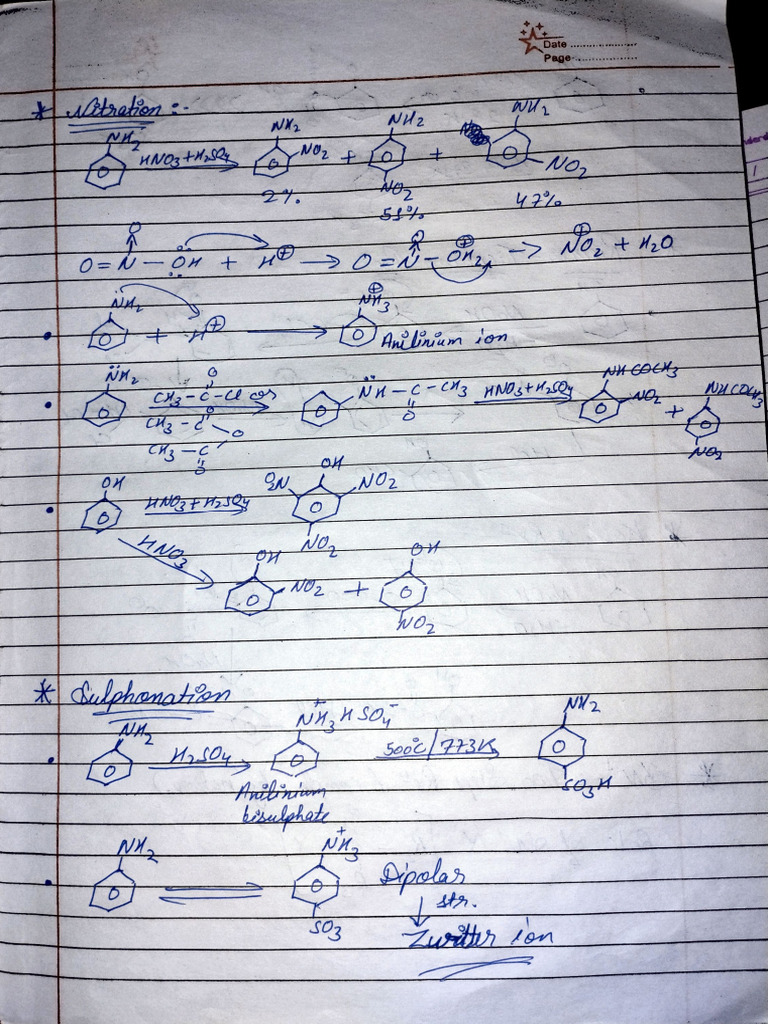 Date ....................
Page ....................
* Nitration :-
NH2 HNO3+H2SO4 NH2 NO2 + NH2 NO2 + NH2 NO2
2% 51% 47%
O
O = N - ÖH + H⊕ → O = N - OH2 → NO2 + H2O
N̈H2 + H⊕ → NH3
Anilinium ion
N̈H2 CH3-C-Cl or N̈H-C-CH3 HNO3+H2SO4 NHCOCH3 NO2 + NHCOCH3 NO2
O O
CH3-C
O
CH3-C
O
OH HNO3+H2SO4 O2N OH NO2 NO2
HNO3 OH NO2 + OH NO2
* Sulphonation
NH2 H2SO4 NH3HSO4 500°C/773K NH2 SO3H
Anilinium
bisulphate
NH2 ⇌ NH3 SO3 Dipolar
↓ str.
Zwitter ion